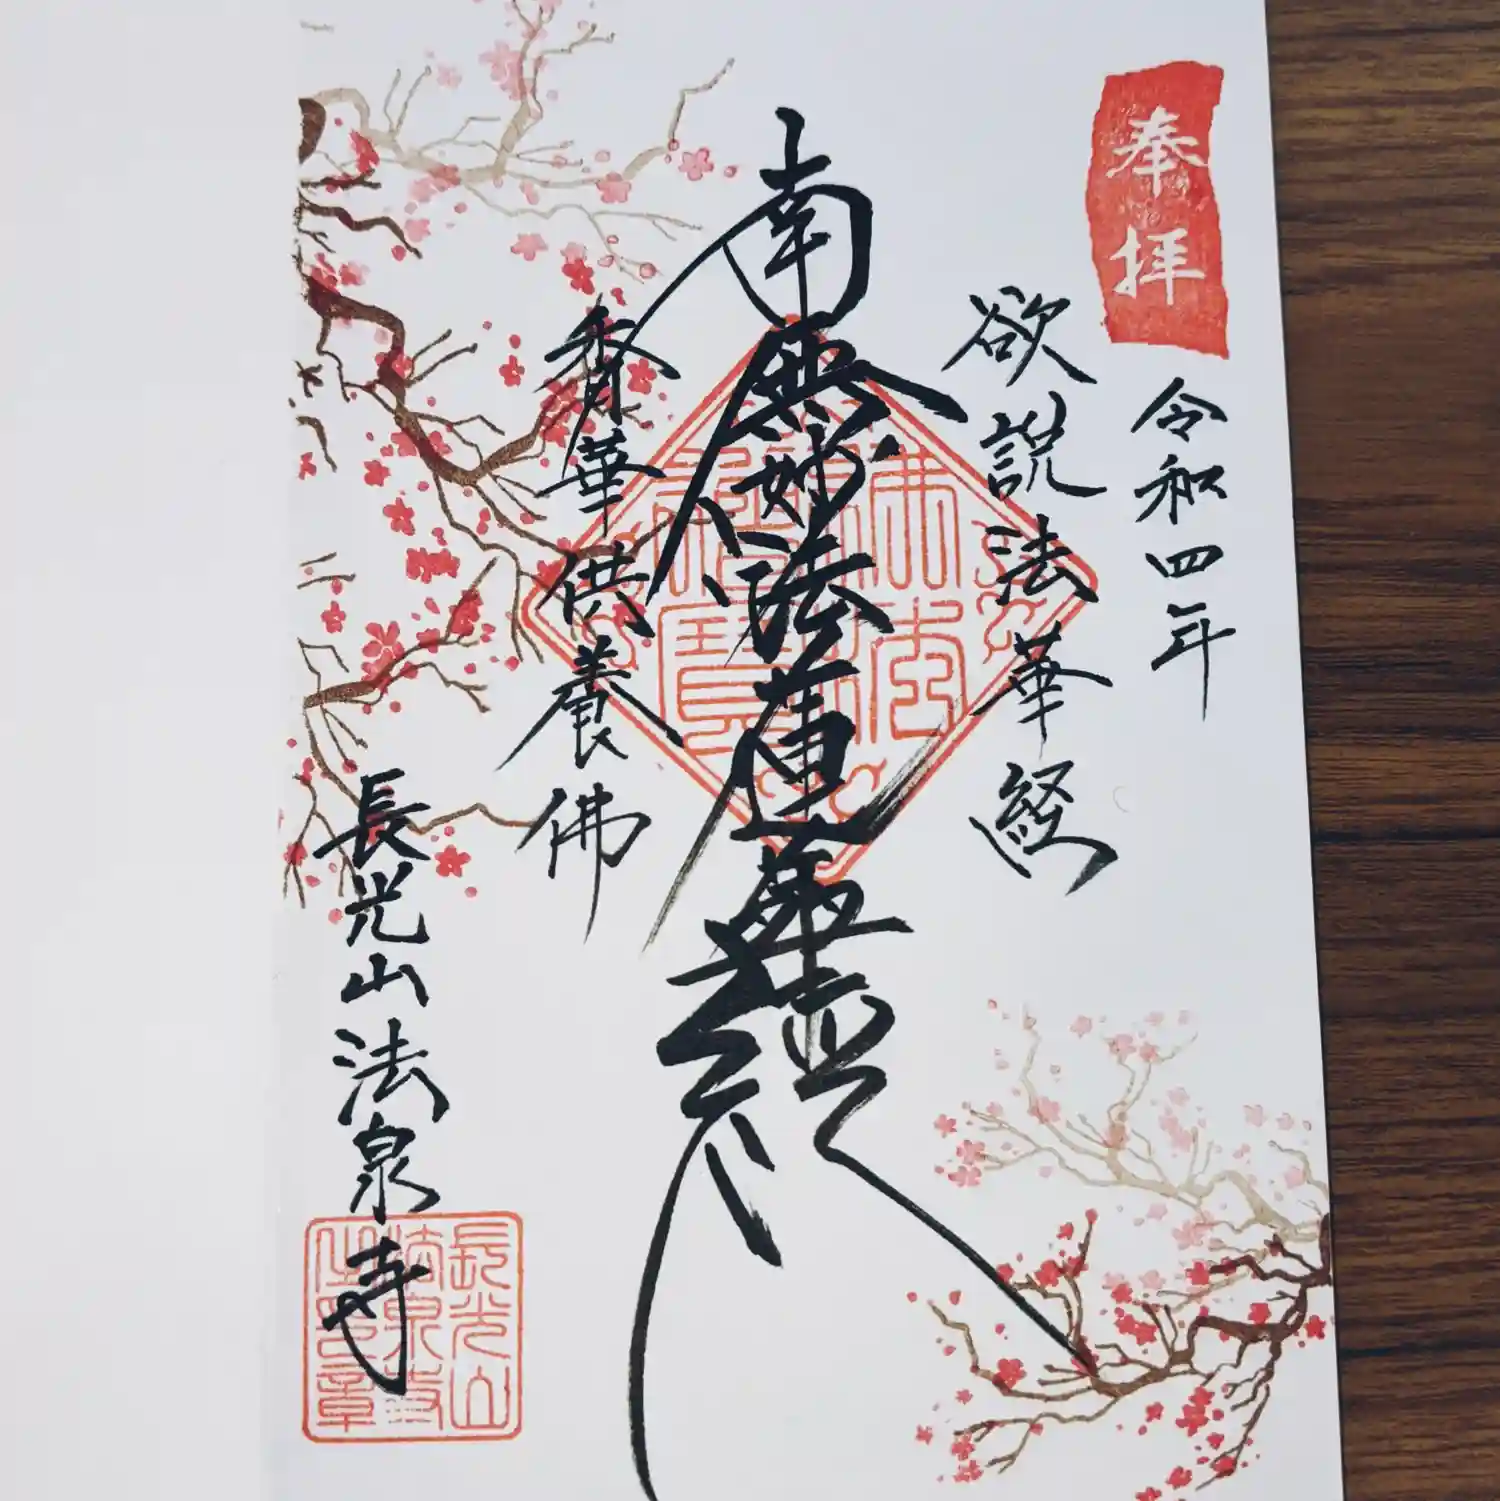 奉拝
令和四年
欲説法華経
南無妙法蓮華経
香華供養佛
長光山法泉寺
長光山
法泉寺
之印章